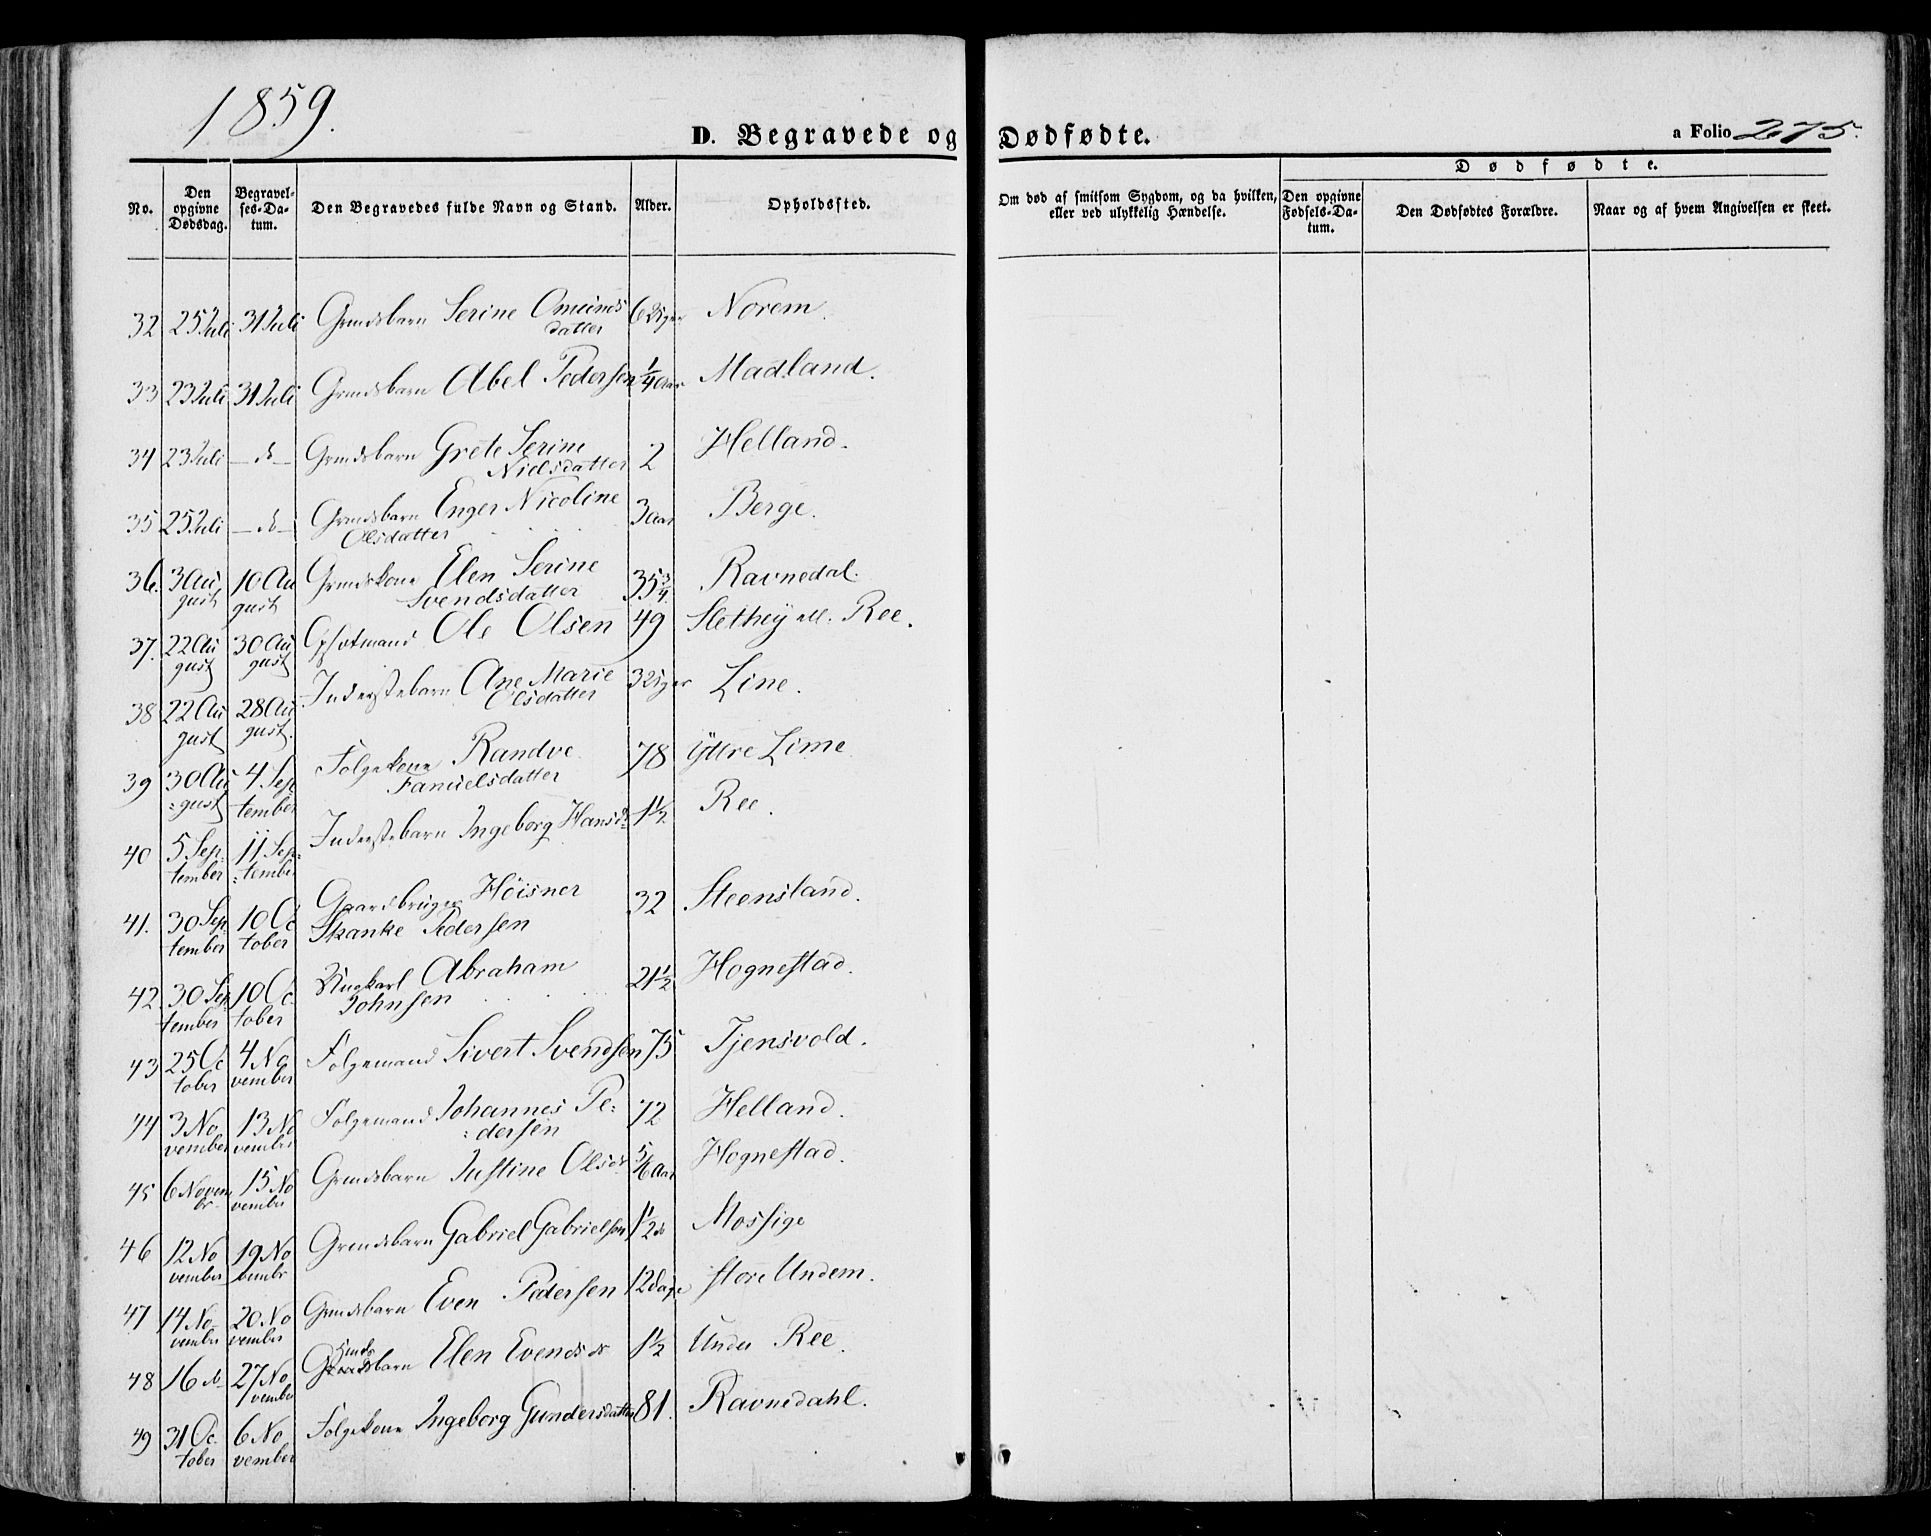 1859.
D. Begravede og Dødfødte.
a Folio 275.
No.
Den opgivne Dødsdag.
Begravelses-Datum.
Den Begravedes fulde Navn og Stand.
Alder.
Opholdssted.
Om død af smitsom Sygdom, og da hvilken, eller ved ulykkelig Hændelse.
Dødfødte.
Den opgivne Fødsels-Datum.
Den Dødfødtes Forældre.
Naar og af hvem Angivelsen er skeet.
32 25 Juli 31 Juli Grmdsbarn Serine Omunds datter 6 Uger Norem.
33 23 Juli 31 Juli Grmdsbarn Abel Pedersen 1/4 Aar Madland.
34 23 Juli - do - Grmdsbarn Grete Serine Nielsdatter 2 Helland.
35 25 Juli - do - Grmdsbarn Enger Nicoline Olsdatter 3 Aar Berge.
36. 3 August 10 August Grmdskone Elen Serine Svendsdatter 35 3/4. Ravnedal.
37. 22 August 30 August Ole Olsen 49 Slethey all. Ree.
38 22 August 28 August. Inderstebarn Ane Marie Olsdatter 3 Uger Line.
39 30 August 4 September Folgekone Randve Samuelsdatter 78 Yttre Lime
40 5 September 11 September Inderstebarn Ingeborg Hansd: 1 1/2 Ree.
41. 30 September 1 October Gaardbruger Höisner Skanke Pedersen 32 Steensland.
42. 30 September 1 October Ungkarl Abraham Johnsen 21 1/2 Hognestad.
43 25 October 4 November Folgemand Sivert Svendsen 75 Tjensvold.
44 3 November 13 November Folgemand Johannes Pedersen 72 Helland.
45 6 Novembr. 15 November Grmdsbarn Justine Olsdr 5/6 Aar Hognestad.
46 12 November 19 Novembr Grmdsbarn Gabriel Gabrielsen 1 1/2 do Mossige
47 14 November 20 November Grmdsbarn Even Pedersen 12 Dage store Undem.
48 16 N- 27 November Gmdsbarn Elen Evends dr 1 1/2 Under Ree.
49 31 October 6 November Folgekone Ingeborg Gundersdatter 81. Ravnedahl.